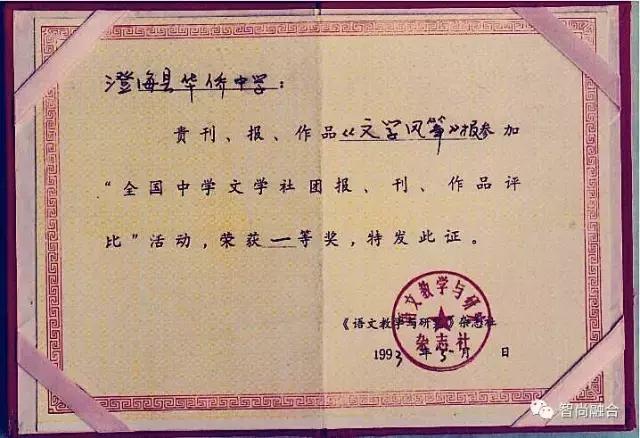 澄海县华侨中学：
贵刊、报、作品《文学风筝》报参加
“全国中学文学社团报、刊、作品评
比”活动，荣获一等奖，特发此证。
语文教学与研究
杂志社
《语文教学与研究》杂志社
1993年5月 日
智尚融合